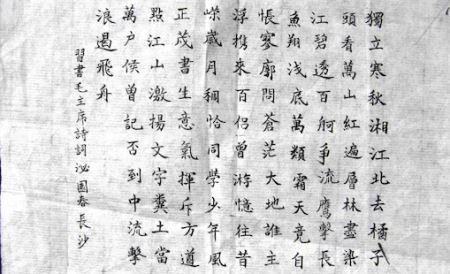 獨立寒秋湘江北去橘子
頭看萬山紅遍層林盡染
江碧透百舸爭流鷹擊長
魚翔淺底萬類霜天竟自
悵寥廓問蒼茫大地誰主
浮携來百侶曾游憶往昔
嶸歲月稠恰同學少年風
正茂書生意氣揮斥方遒
點江山激揚文字糞土當
萬户侯曾記否到中流擊
浪遏飛舟
習書毛主席詩詞泌園春長沙